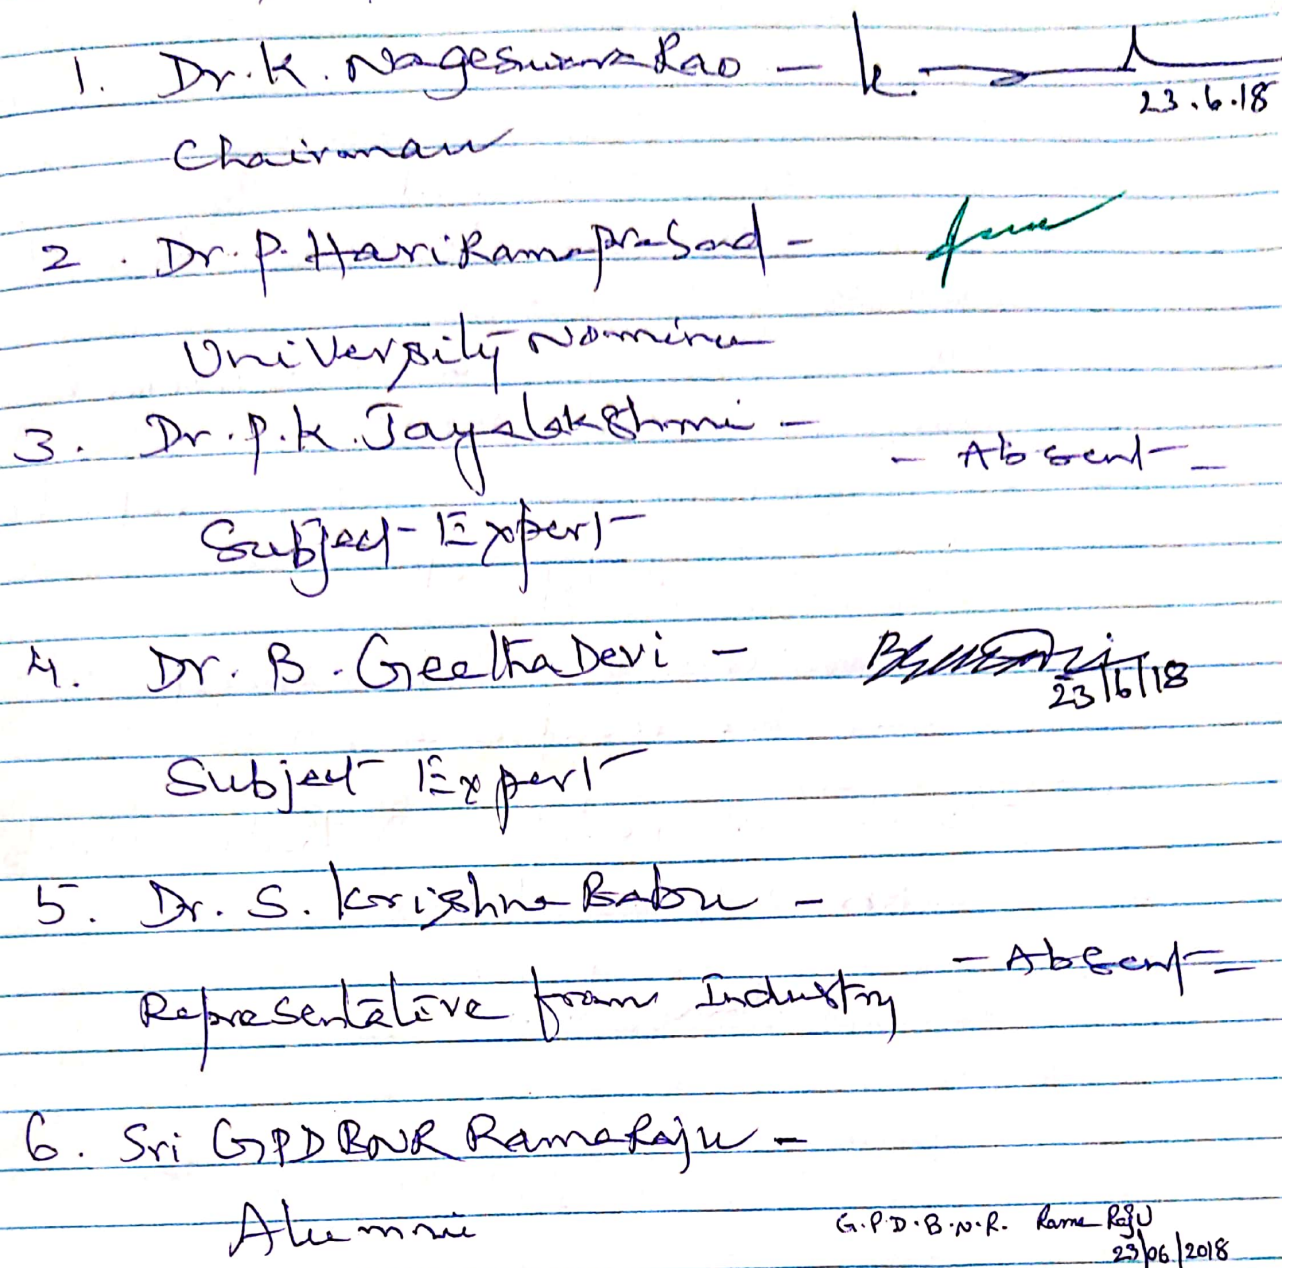 1. Dr. K. Nageswara Rao - K.
23.6.18
Chairman
2. Dr. P. Hari Ramaprasad -
University Nominee
3. Dr. P. K. Jayalakshmi -
- Absent -
Subject Expert
4. Dr. B. Geetha Devi -
23/6/18
Subject Expert
5. Dr. S. Krishna Babu -
- Absent -
Representative from Industry
6. Sri GPDBNR Rama Raju -
Alumni
G.P.D.B.N.R. Rama Raju
23/06/2018